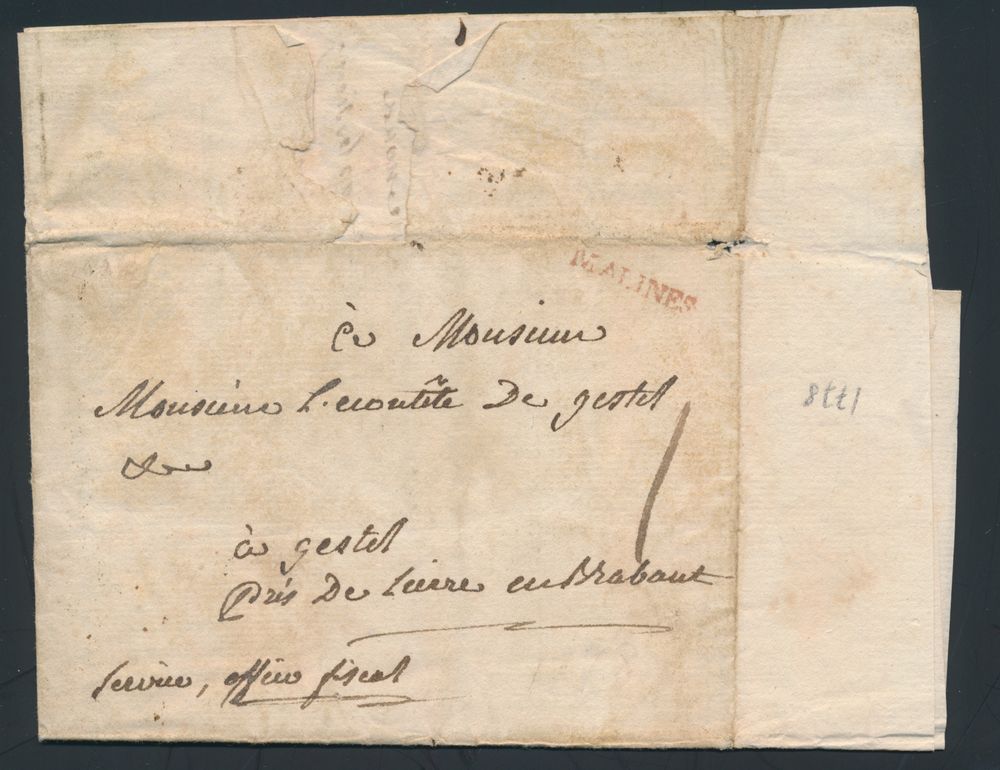 MALINES
à Monsieur
Monsieur De gestel
&
1
à gestel
près De Lierre en Brabant
service, office fiscal
1778